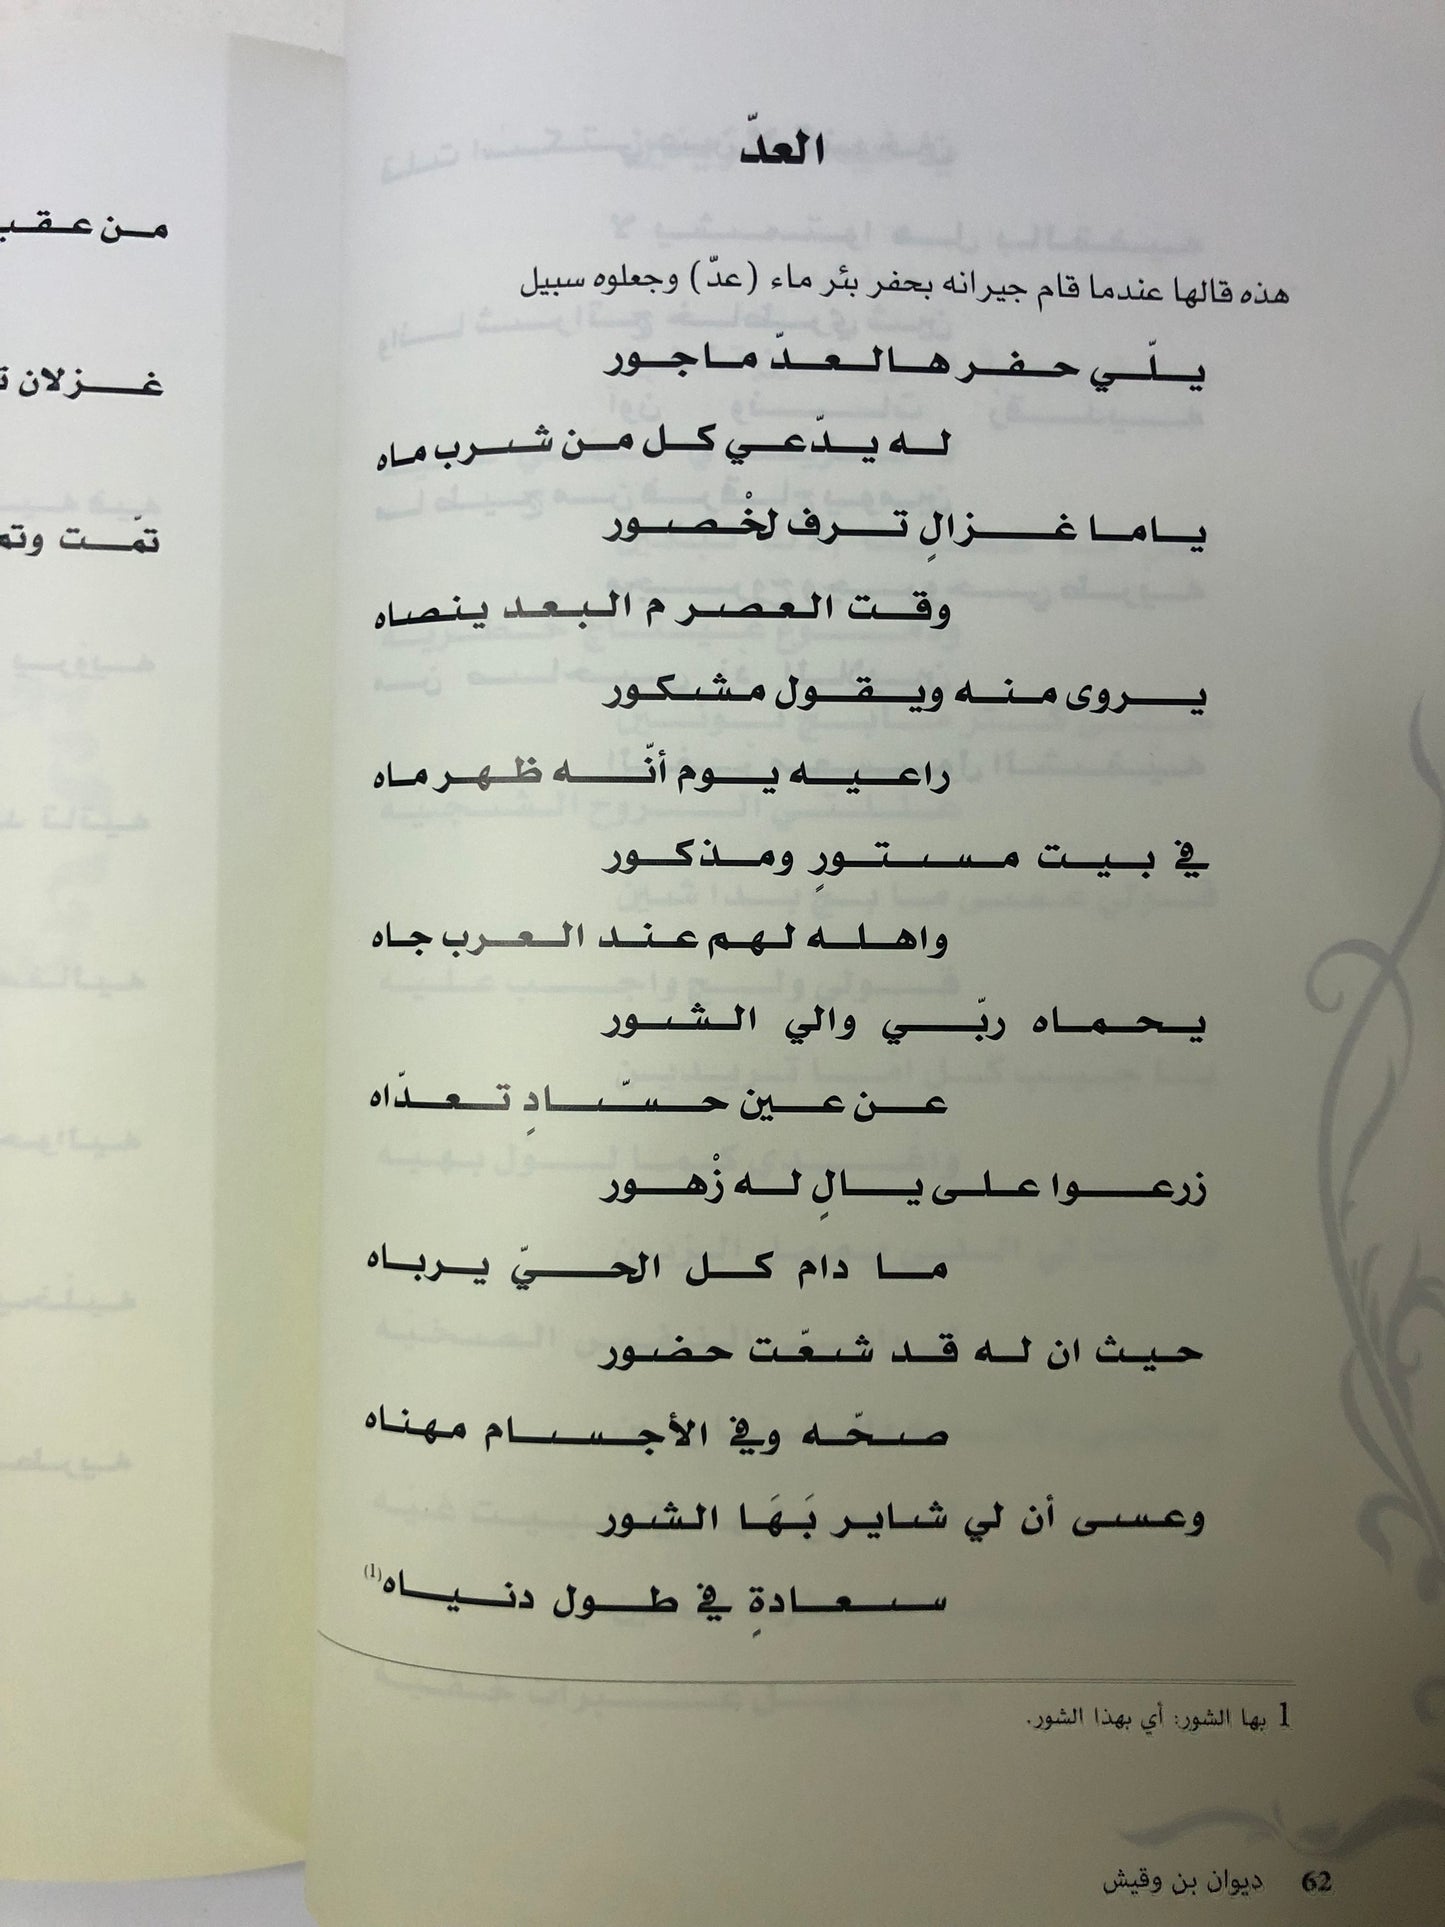 العدّ
هذه قالها عندما قام جيرانه بحفر بئر ماء (عدّ) وجعلوه سبيل
يلّي حفر هالعدّ ماجور
له يدّعي كل من شرب ماه
ياما غزالٍ ترف لخْصور
وقت العصر م البعد ينصاه
يروى منه ويقول مشكور
راعيه يوم أنّه ظهر ماه
في بيت مستورٍ ومذكور
واهله لهم عند العرب جاه
يحماه ربّي والي الشور
عن عين حسّادٍ تعدّاه
زرعوا على يالٍ له زْهور
ما دام كل الحيّ يرباه
حيث ان له قد شعّت حضور
صحّه وفي الأجسام مهناه
وعسى أن لي شاير بَهَا الشور
سعادةٍ في طول دنياه(1)
1 بها الشور: أي بهذا الشور.
62 ديوان بن وقيش
من
غزلان
تمّت